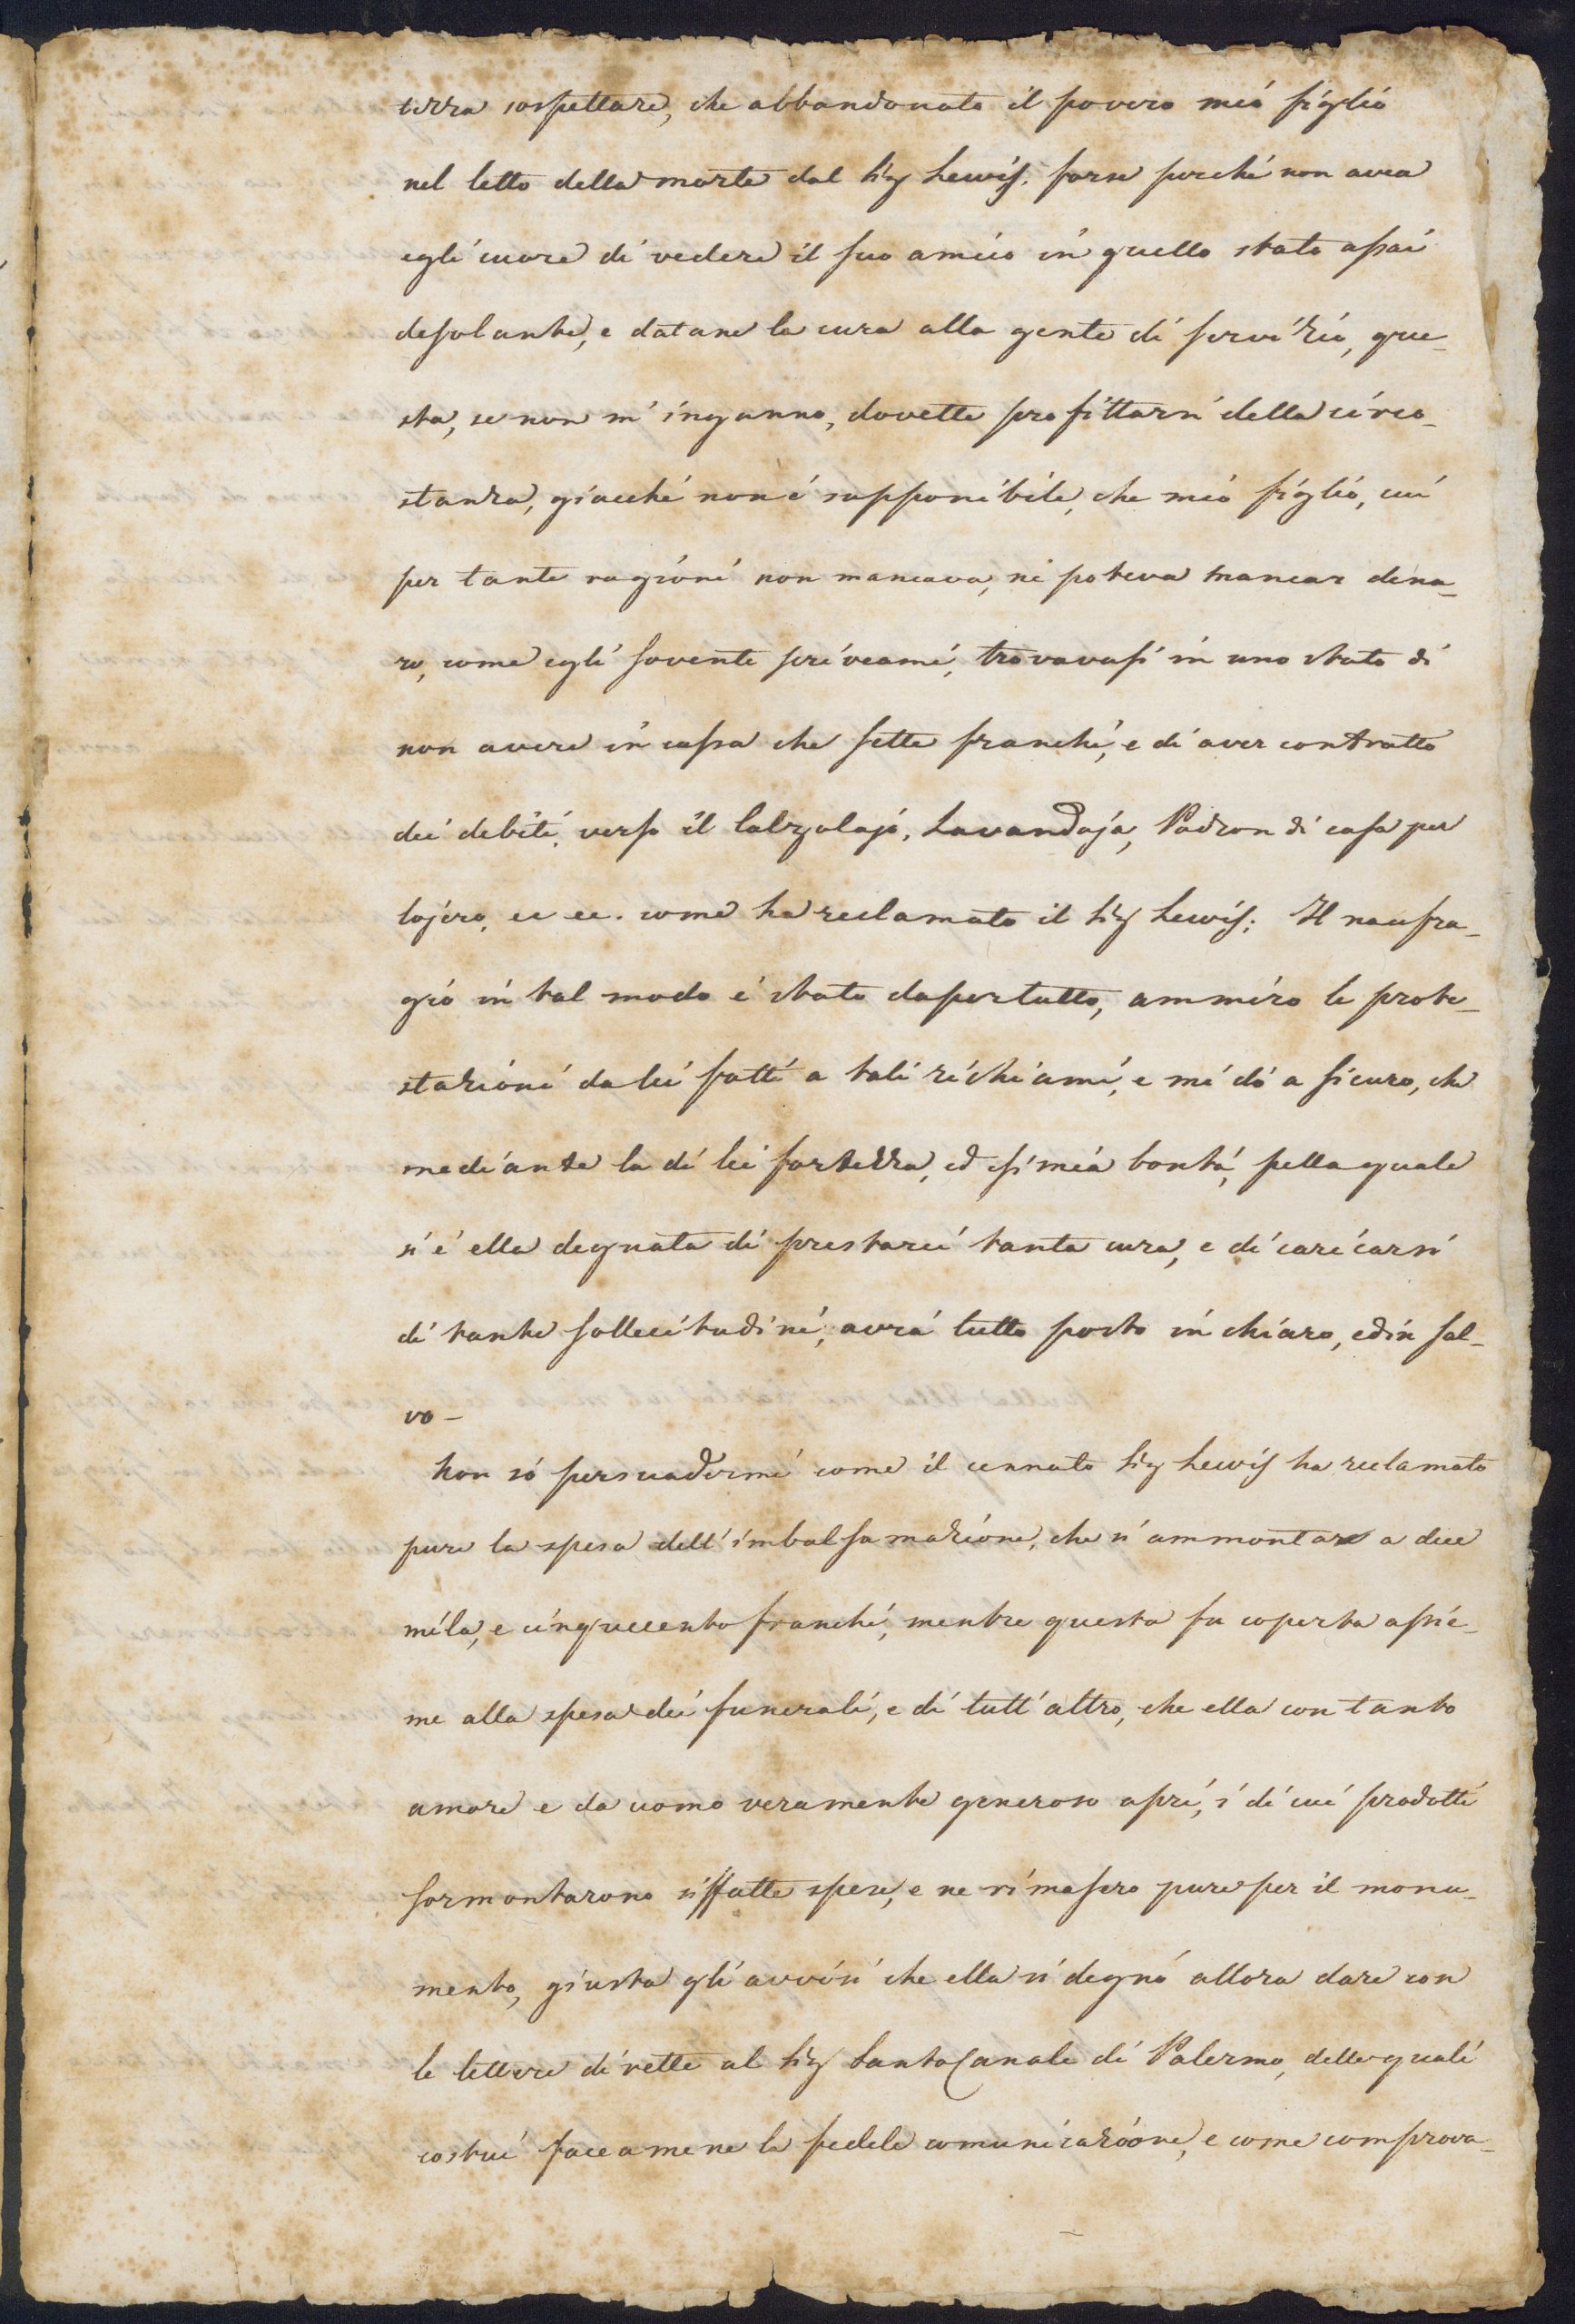 terza sospettare, che abbandonato il povero mio figlio
nel letto della morte dal Sig Lewis, forse perché non avea
egli cuore di vedere il suo amico in quello stato assai
desolante, e datane la cura alla gente di servizio, que_
sta, se non m'inganno, dovette profittarsi della circo_
stanza, giacché non è supponibile, che mio figlio, cui
per tante ragioni non mancava, né poteva mancar dena_
ro, come egli sovente scriveami, trovavasi in uno stato di
non avere in cassa che sette franchi, e di aver contratto
dei debiti, verso il Calzolajo, Lavandaja, Padron di casa per
lojero, ec ec. come ha reclamato il Sig Lewis: Il naufra_
gio in tal modo è stato dapertutto, ammiro le prote_
stazioni da lei fatti a tali richiami, e mi dò a sicuro, che
mediante la di lei fortezza, ed esimia bontà, pella quale
si è ella degnata di prestarci tanta cura, e di caricarsi
di tante sollecitudini, avrà tutto posto in chiaro, ed in sal_
vo _
Non sò persuadermi come il cennato Sig Lewis ha reclamato
pure la spesa dell'imbalsamazione, che si ammontare a due
mila, e cinquecento franchi, mentre questa fu coperta assie_
me alla spesa dei funerali, e di tutt'altro, che ella con tanto
amore e da uomo veramente generoso aprì, i di cui prodotti
sormontarono siffatte spese, e ne rimasero pure per il monu_
mento, giusta gli avvisi che ella si degnò allora dare con
le lettere dirette al Sig SantoCanale di Palermo, delle quali
costui faceamene la fedele comunicazione, e come comprova_